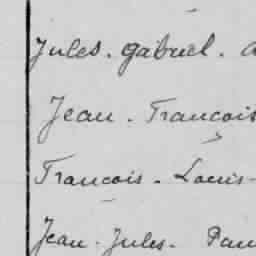 Jules. Gabriel.
Jean. Francois
Francois. Louis-
Jean. Jules.